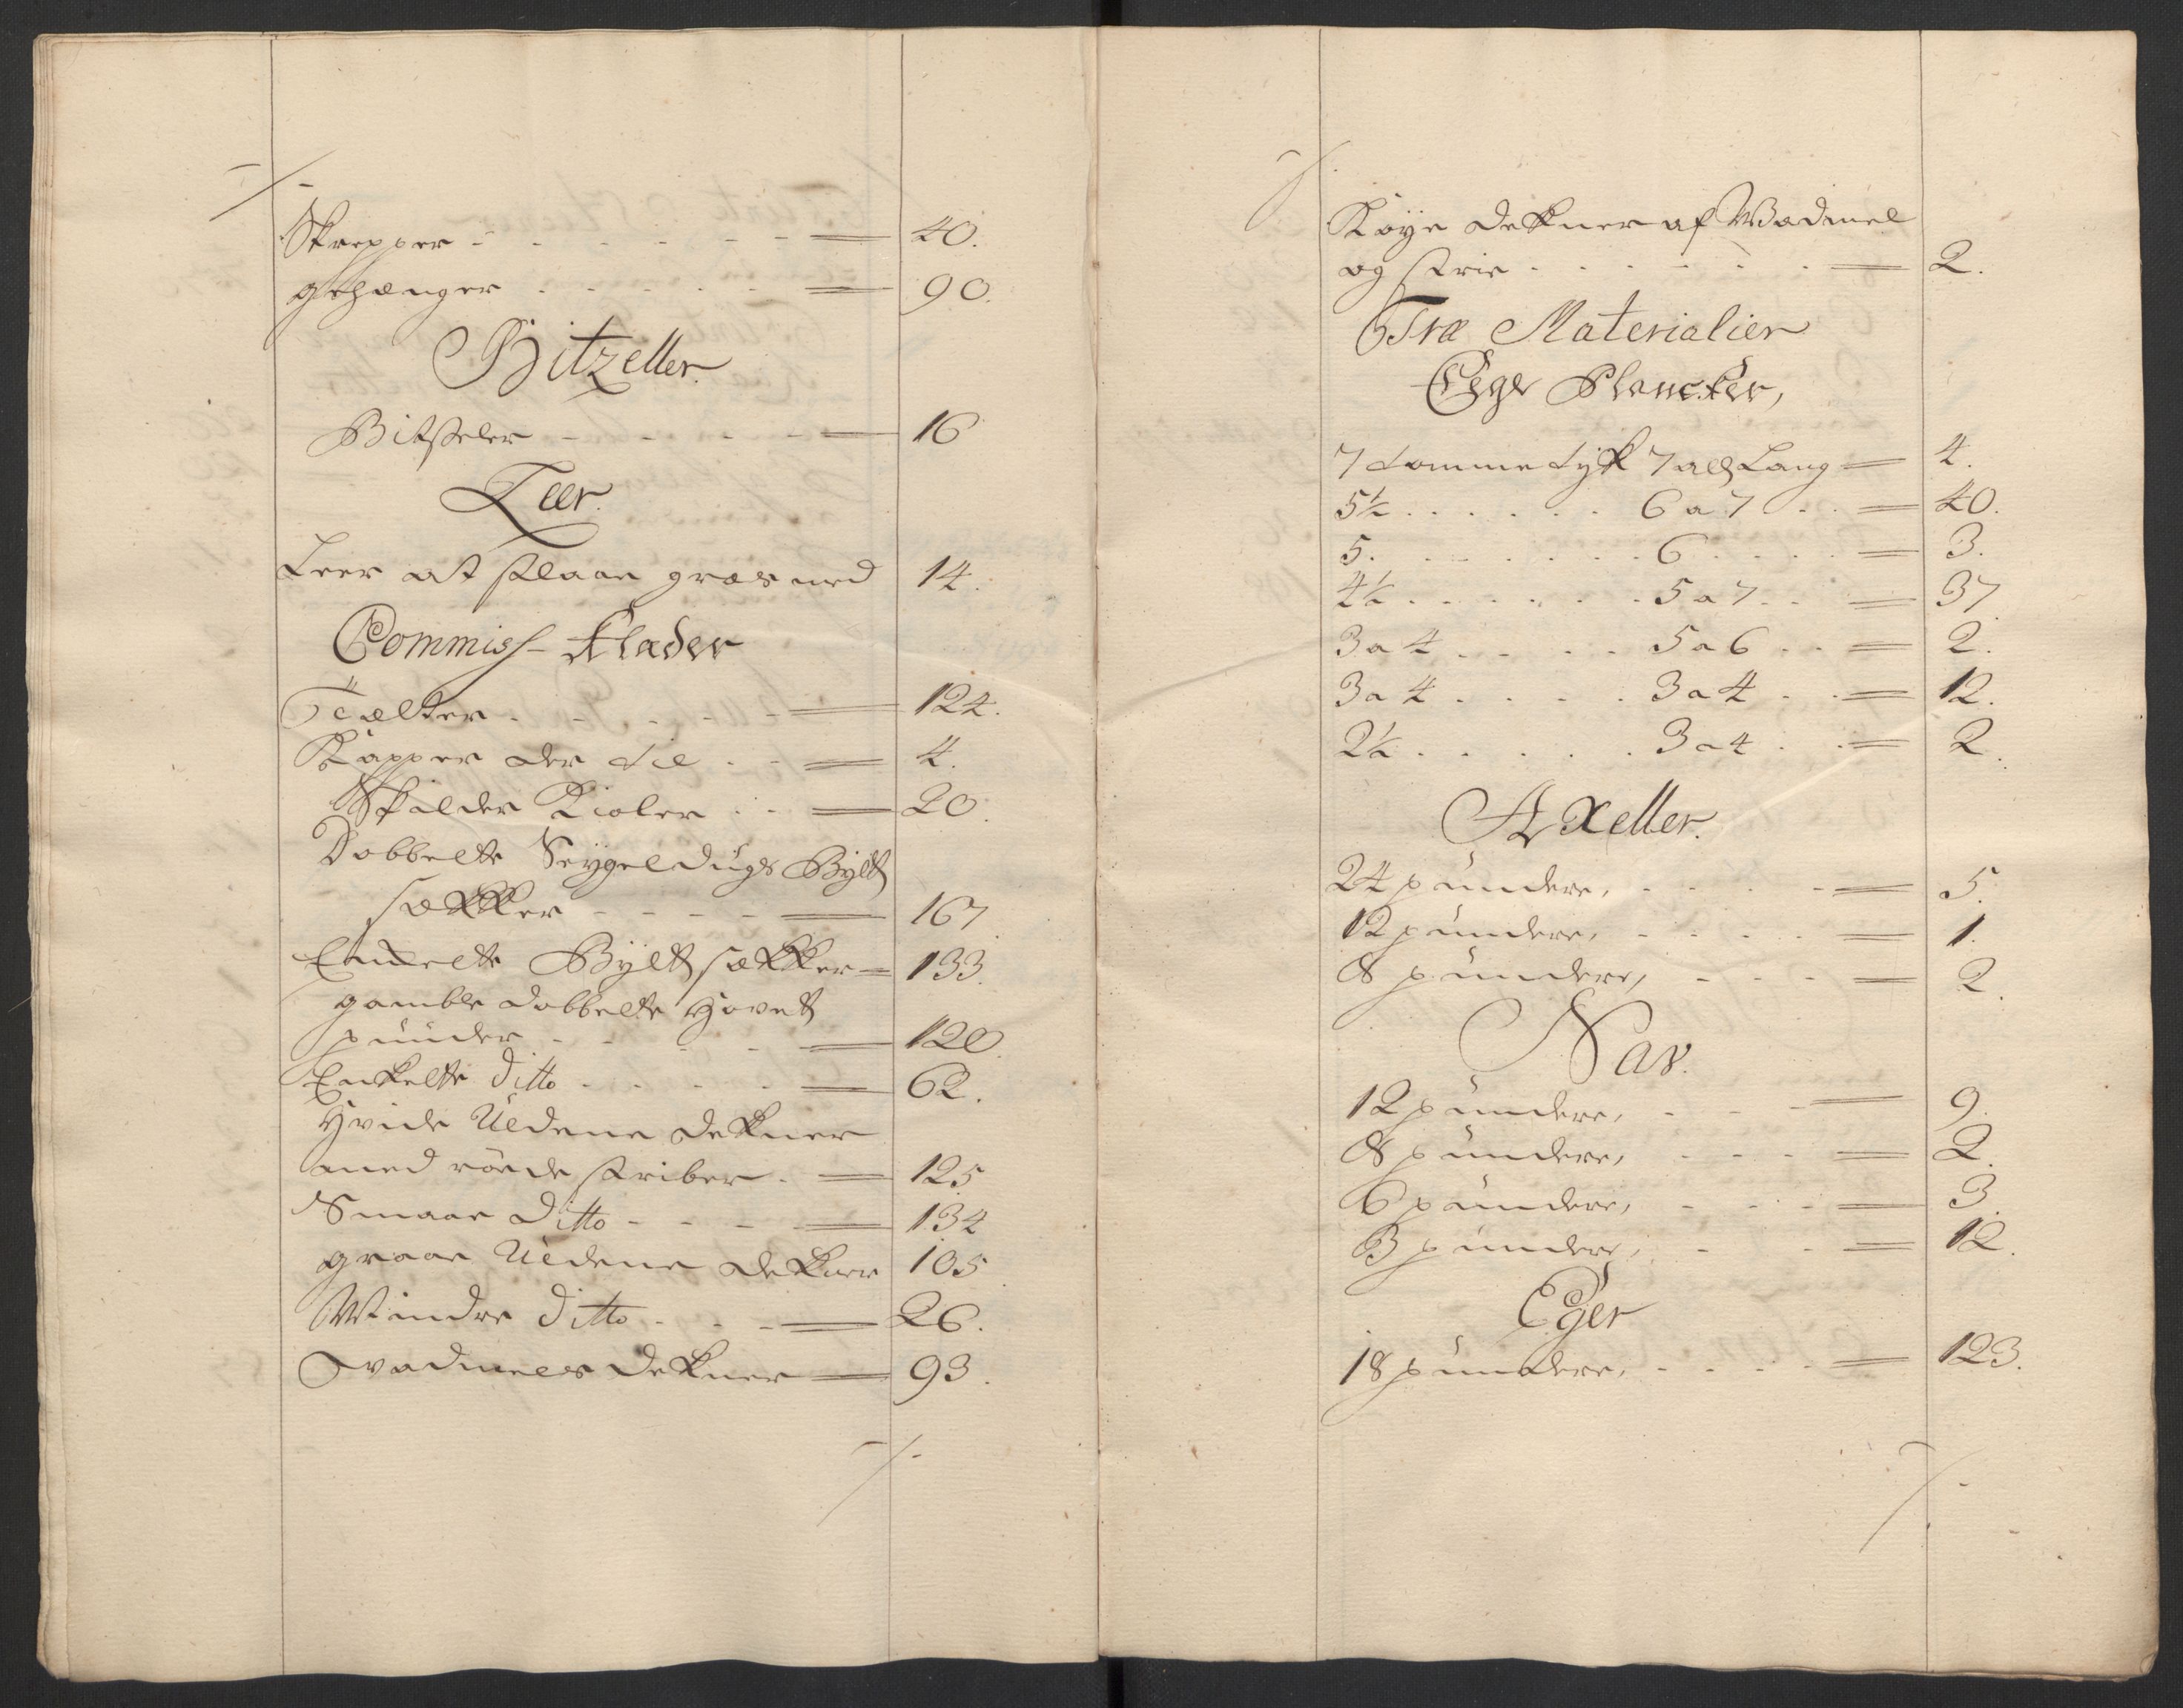 Skrepper - - - - - - = 40.
gehænger . . . . . = 90.
Bitzeller.
Bidtzeler - - - - - = 16
Leer.
Leer at slaae græs med 14.
Commiss- Klæder
Tiælter . - - - - = 124.
Kapper der til . - = 4.
Skilder Kioler . - = 20.
Dobbelte Seygeldugs Bylt
sækker - - - - = 167
Enkelte Byltsækker = 133.
gamble dobbelte Hovet
pünder - - - - = 120.
Enkelte ditto . . . . = 62.
Hvide Uldene dekner
med røede striber . = 125
Smaae ditto - - - = 134
graae Uldene dekner 105
Mindre ditto - - - = 26.
Wadmels dekner = 93.
Køye dekner af Wadmel
og strie . . . . . . = 2.
Træ Materialier
Eege Plancker,
7 tomme tyk 7 all Lang = 4.
5½ . . . . . . 6 a 7 . . = 40.
5. . . . . . . 6 . . . . = 3.
4½ . . . . . . 5 a 7 . . = 37
3 a 4 . . . . 5 a 6 . . = 2.
3 a 4 . . . . 3 a 4 . . = 12.
2½ . . . . . 3 a 4 . . = 2.
Axeller.
24 pündere, - - - - = 5.
12 pündere, - - - - = 1.
8 pündere, - - - = 2.
Nav.
12 pündere, - - - = 9.
8 pündere, - - - = 2.
6 pündere, - - - = 3.
3 pündere, - - = 12.
Eger
18 pündere, - - - - = 123.